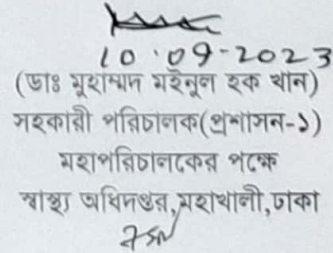 10.09-2023
(ডাঃ মুহাম্মদ মইনুল হক খান)
সহকারী পরিচালক(প্রশাসন-১)
মহাপরিচালকের পক্ষে
স্বাস্থ্য অধিদপ্তর,মহাখালী,ঢাকা